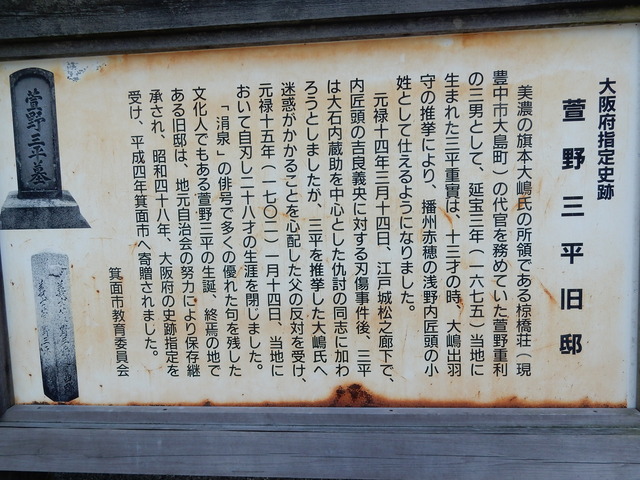 大阪府指定史跡
萱野三平旧邸
美濃の旗本大嶋氏の所領である椋橋荘（現
豊中市大島町）の代官を務めていた萱野重利
の三男として、延宝三年（一六七五）当地に
生まれた三平重實は、十三才の時、大嶋出羽
守の推挙により、播州赤穂の浅野内匠頭の小
姓として仕えるようになりました。
元禄十四年三月十四日、江戸城松之廊下で、
内匠頭の吉良義央に対する刃傷事件後、三平
は大石内蔵助を中心とした仇討の同志に加わ
ろうとしましたか、三平を推挙した大嶋氏へ
迷惑がかかることを心配した父の反対を受け、
元禄十五年（一七〇二）一月十四日、当地に
おいて自刃し二十八才の生涯を閉じました。
「涓泉」の俳号で多くの優れた句を残した
文化人でもある萱野三平の生誕、終焉の地で
ある旧邸は、地元自治会の努力により保存継
承され、昭和四十八年、大阪府の史跡指定を
受け、平成四年箕面市へ寄贈されました。
箕面市教育委員会
萱野三平墓